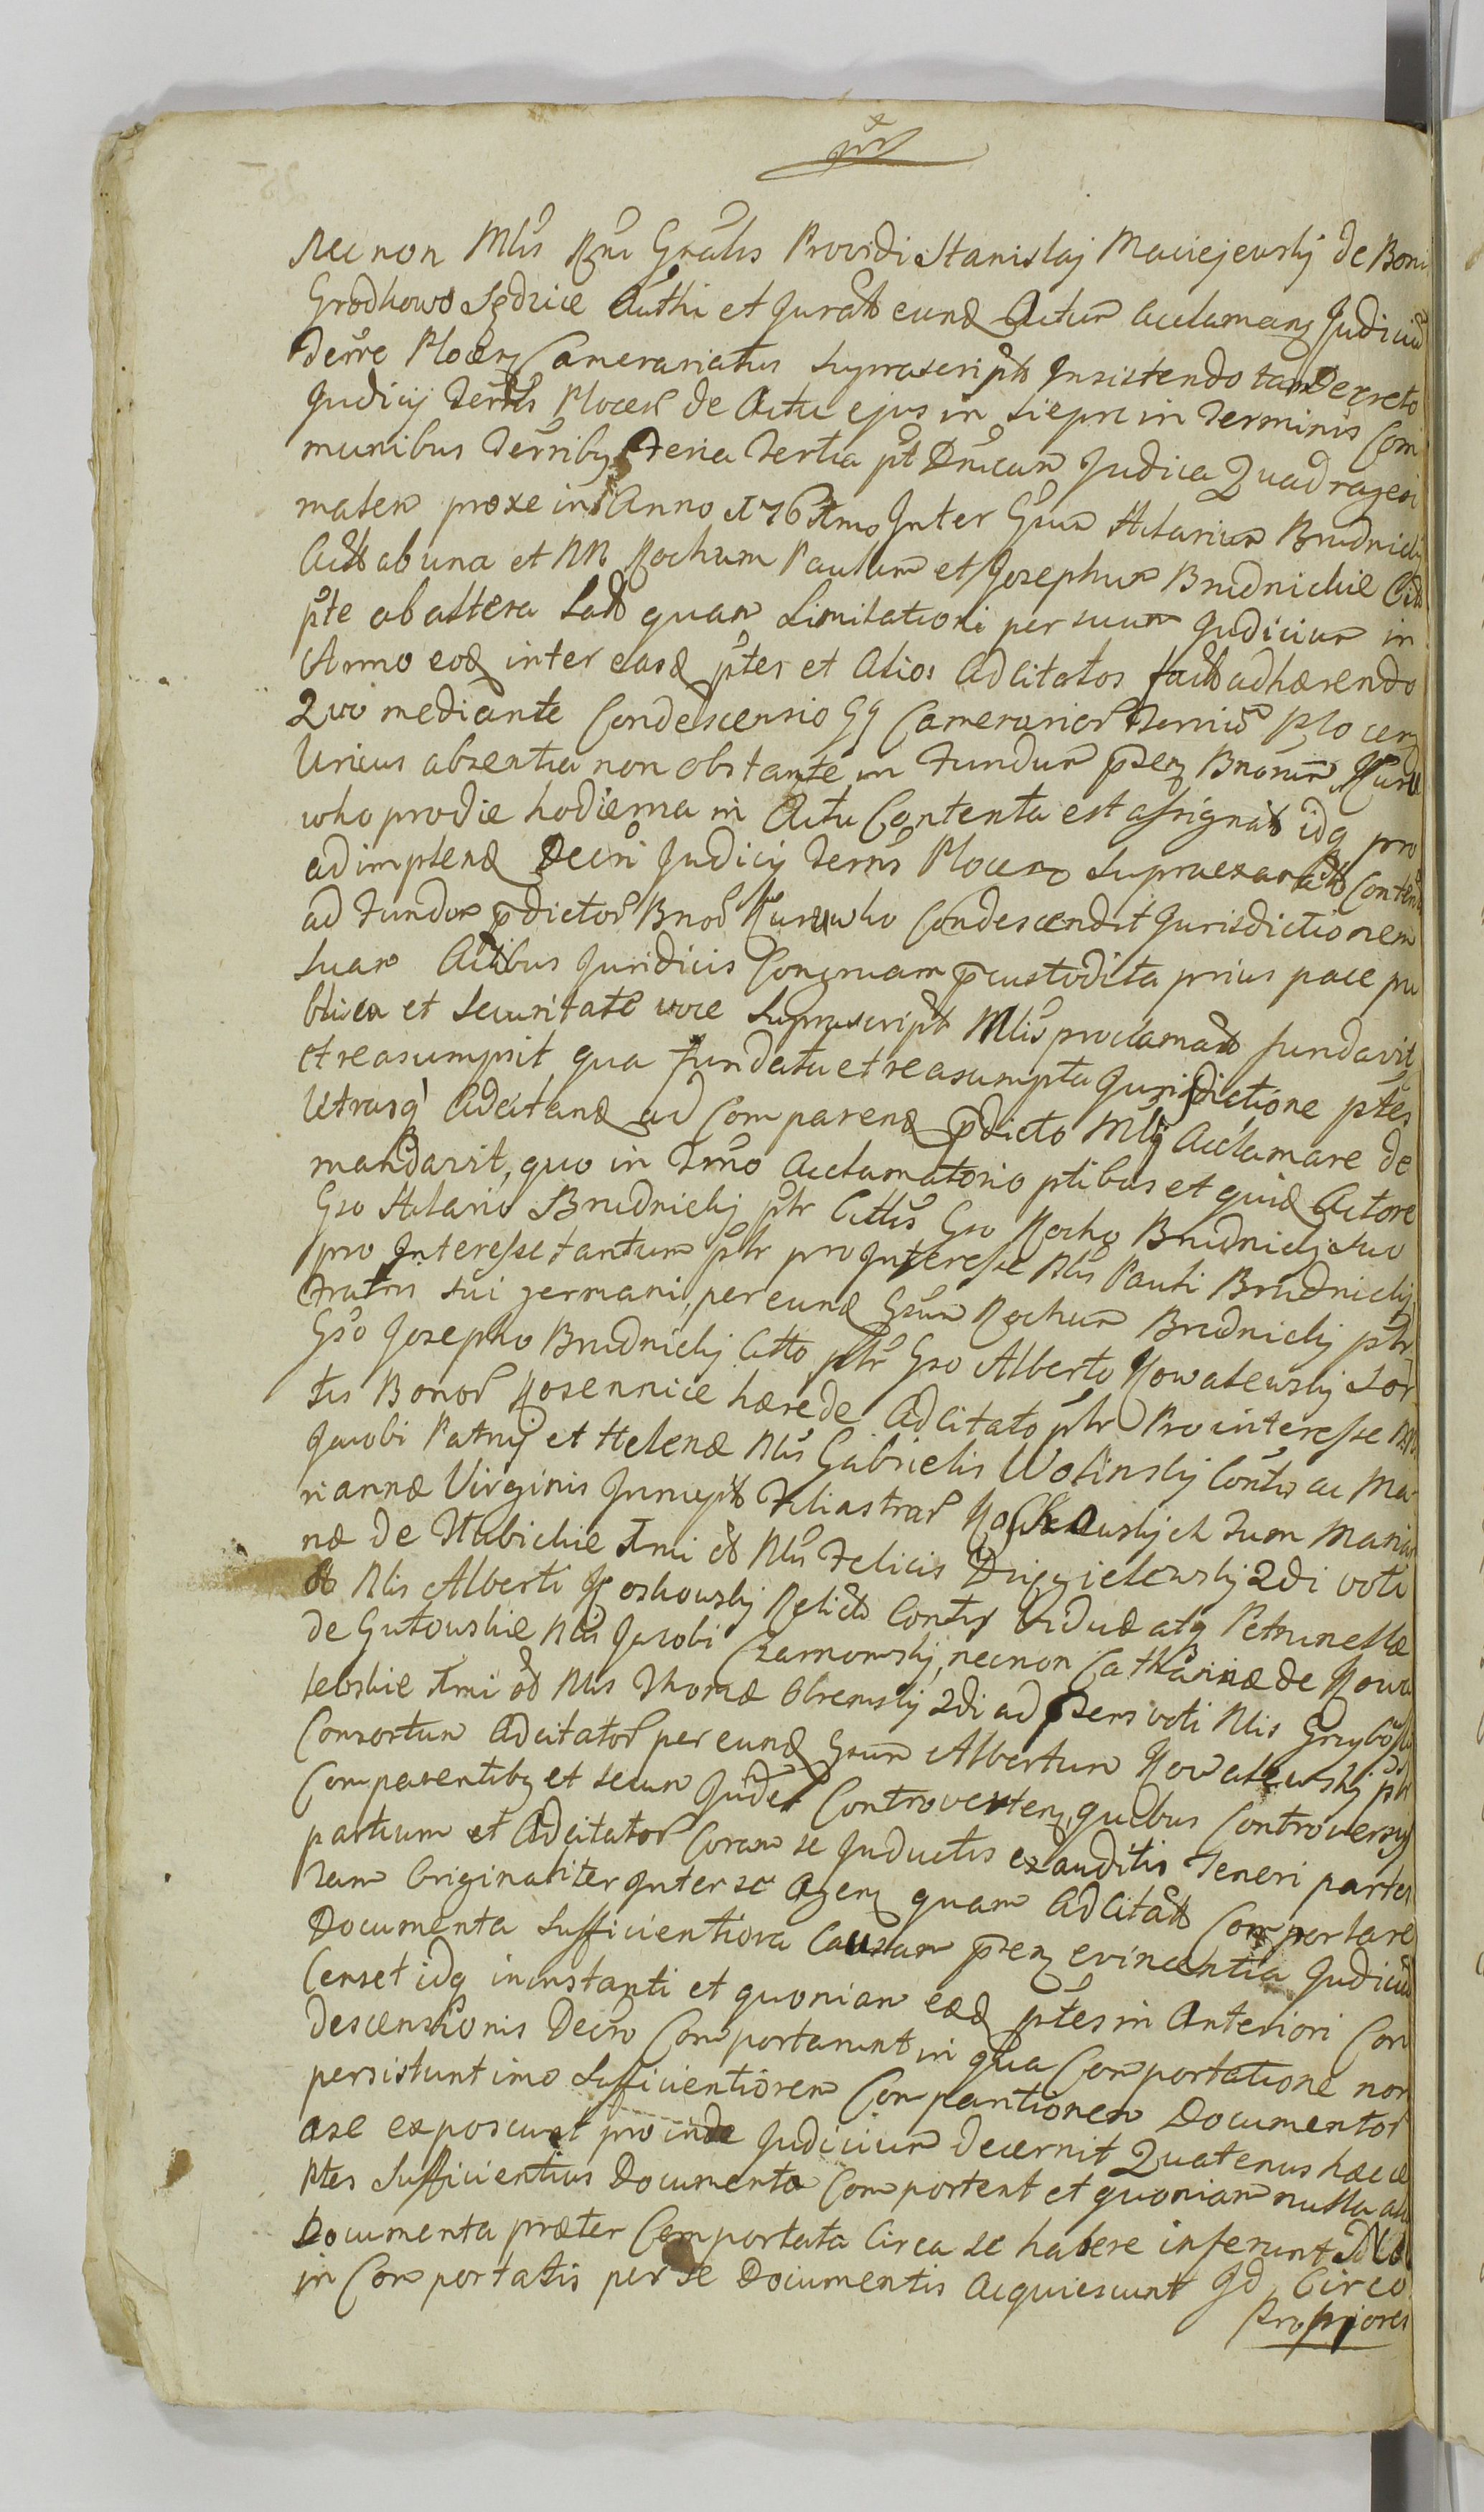 nec non Mlis Rni Gnalis Providi Stanislaj Maciejewskj de Boni
Grodkowo Sędzice Authi et Jurati eund Actum acclamans Judiciu
Terre Plocen Camerariatus suprascript Insistendo tam Decreto
Judicij Terris Plocen de Actu ejus in Sieprc in Terminis Com
munibus Terribq Feria Tertia pt Dnicam Judica Quadragesi
malem proxe in Anno 1761mo Inter Gsum Hilarium Brudnickj
Act ab una et NN Rochum Paulum et Josephum Brudnickie Citt
pte ab altera Lato quam Limitationi per suum Judicium in
Anno eod inter easd ptes et alios adcitatos fact adhærendo
Quo mediante Condescensio GG Camerarior Terriu Plocen
Unius absentia non obstante in Fundum psen Bnorum
who pro die hodierna in Actu Contenta est assignat idq pro
adimplend Decri Judicij Terris Plocen supraexarat Conten
ad Fundum pdictor Bnor Condescendit Jurisdictionem
suam Actibus Juridicis Congruam pcustodita prius pace pu
blica et securitate voce suprascript Mlis proclamat fundavit
et reasumpsit qua fundata et reasumpta Jurisdictione ptes
Utrasq Adcitand ad Comparend pdicto Mlj Acclamare de
mandavit, quo in Trmo acclamatorio ptibus et quid Actore
Gso Hilario Brudnickj ptr Cittis Gso Rocho Brudnickj suo
pro Interesse tantum ptr pro Interesse Nlis Pauli Brudnickj
Fratris sui germani, per eund Gsum Rochum Brudnickj ptr
Gso Josepho Brudnickj Citto ptr Gso Alberto Kowalewskj Sor
tis Bonor hærede Adcitato ptr Pro interesse NN
Jacobi Patruj et Helenæ Nlis Gabrielis Wolinskj Contis ac Ma
riannæ Virginis Juncept Filiastrar tum Marian
næ de Hubickie 1mi et Nlis Felicis 2di voti
et Nlis Alberti Koskowskj Relict Contis Viduæ atq Petrunellæ
de Gutowskie Nlis Jacobi Czarnomskj, necnon Catharinæ de Kowa
lewskie 1mi et Nlis Thomæ Obremskj 2di ad psens voti Nlis
Consortum Adcitator per eund Gsum Albertum Kowalewskj ptr
Comparentibq et secum Juder Controverten, quibus Controversijs
partium et Adcitator Coram se Inductis exauditis Teneri partes
tam Originaliter Inter se Agen quam Adcitat Comportare
Documenta sufficientiora Causam psen evincentia Judiciu
Censet idq in instanti et quoniam eæd ptes in Anteriori Con
descensionis Decro Comportarunt in qua Comportatione non
persistunt imo sufficientiorem Comportationem Documentor
a se exposcunt proinde Judicium Decernit Quatenus hæcce
Ptes sufficientius Documenta Comportent et quoniam nulla alia
Documenta præter Comportata Circa se habere inferunt
in Comportatis per se Documentis Acquiescunt Id Circo
Propriores